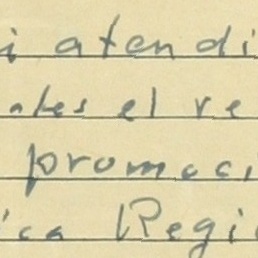 i atendi
ales el re
promoci
ica Regio